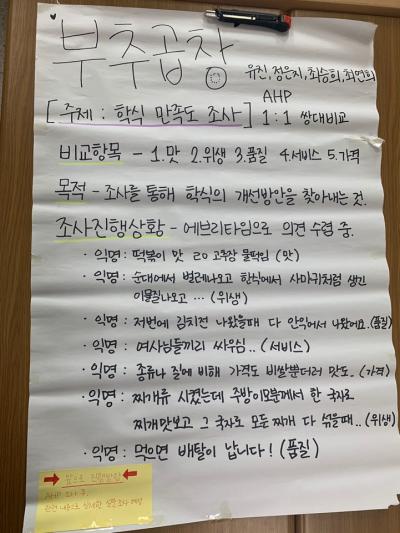 부추곱창
유진, 정은지, 최승희, 최연희
[주제 : 학식 만족도 조사]
AHP
1:1 쌍대비교
비교항목 - 1.맛 2.위생 3.품질 4.서비스 5.가격
목적 - 조사를 통해 학식의 개선방안을 찾아내는 것.
조사진행상황 - 에브리타임으로 의견 수렴 중.
· 익명 : 떡볶이 맛 20 고추장 물떡임 (맛)
· 익명 : 순대에서 벌레나오고 한식에서 사마귀처럼 생긴
이물질나오고 ··· (위생)
· 익명 : 저번에 김치전 나왔을때 다 안익어서 나왔어요.(품질)
· 익명 : 여사님들끼리 싸우심.. (서비스)
· 익명 : 종류나 질에 비해 가격도 비쌀뿐더러 맛도.. (가격)
· 익명 : 찌개류 시켰는데 주방이모분께서 한 국자로
찌개맛보고 그 국자로 모든 찌개 다 섞을때.. (위생)
· 익명 : 먹으면 배탈이 납니다! (품질)
앞으로 진행방향
AHP 조사 후,